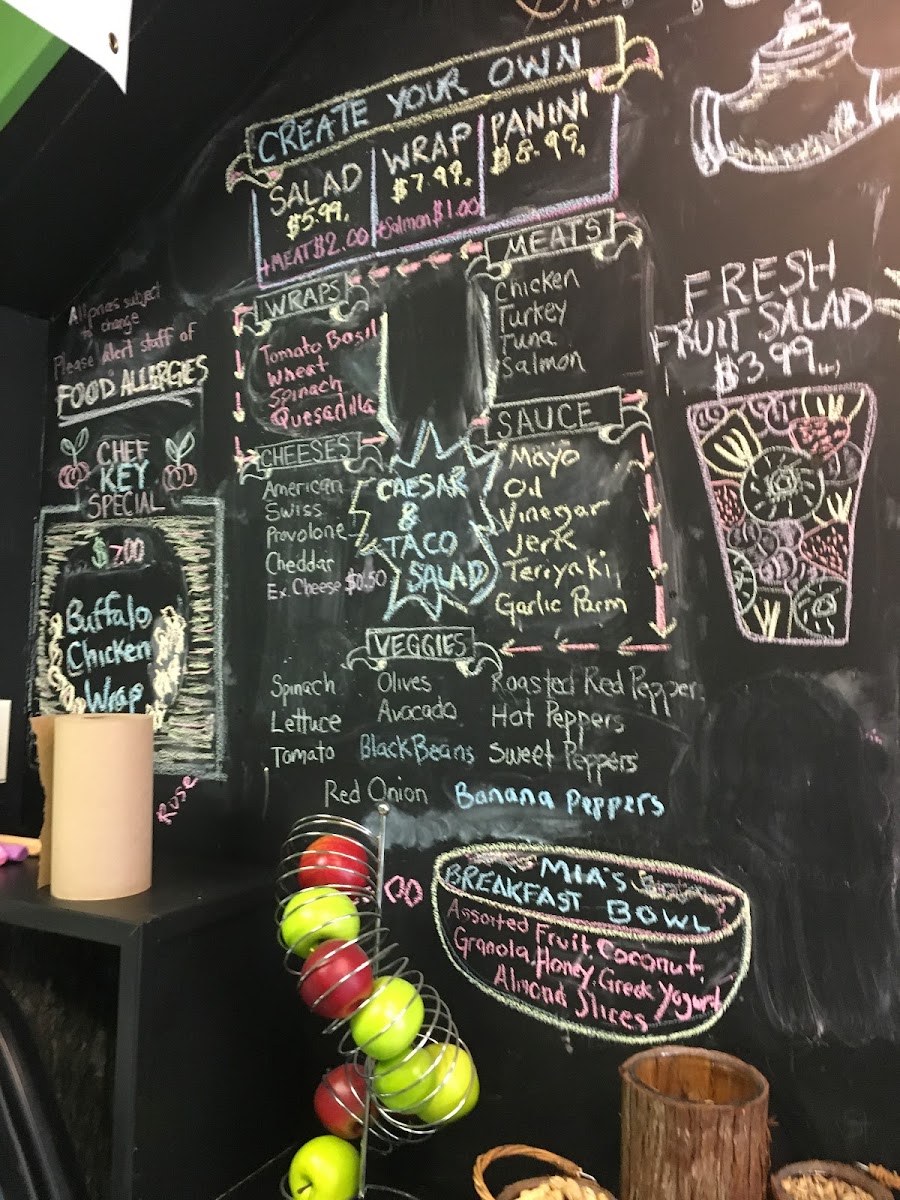 CREATE YOUR OWN
SALAD
$5.99
+MEAT $2.00
WRAP
$7.99
+Salmon $1.00
PANINI
$8.99
WRAPS
Tomato Basil
Wheat
Spinach
Quesadilla
MEATS
Chicken
Turkey
Tuna
Salmon
CHEESES
American
Swiss
Provolone
Cheddar
Ex. Cheese $0.50
CAESAR
&
TACO
SALAD
SAUCE
Mayo
Oil
Vinegar
Jerk
Teriyaki
Garlic Parm
VEGGIES
Spinach
Lettuce
Tomato
Olives
Avocado
Black Beans
Roasted Red Pepper
Hot Peppers
Sweet Peppers
Red Onion
Banana Peppers
All prices subject
to change
Please alert staff of
FOOD ALLERGIES
CHEF
KEY
SPECIAL
$7.00
Buffalo
Chicken
Wrap
Rose
FRESH
FRUIT SALAD
$3.99
MIA'S
BREAKFAST BOWL
Assorted Fruit, Coconut,
Granola, Honey, Greek Yogurt
Almond Slices